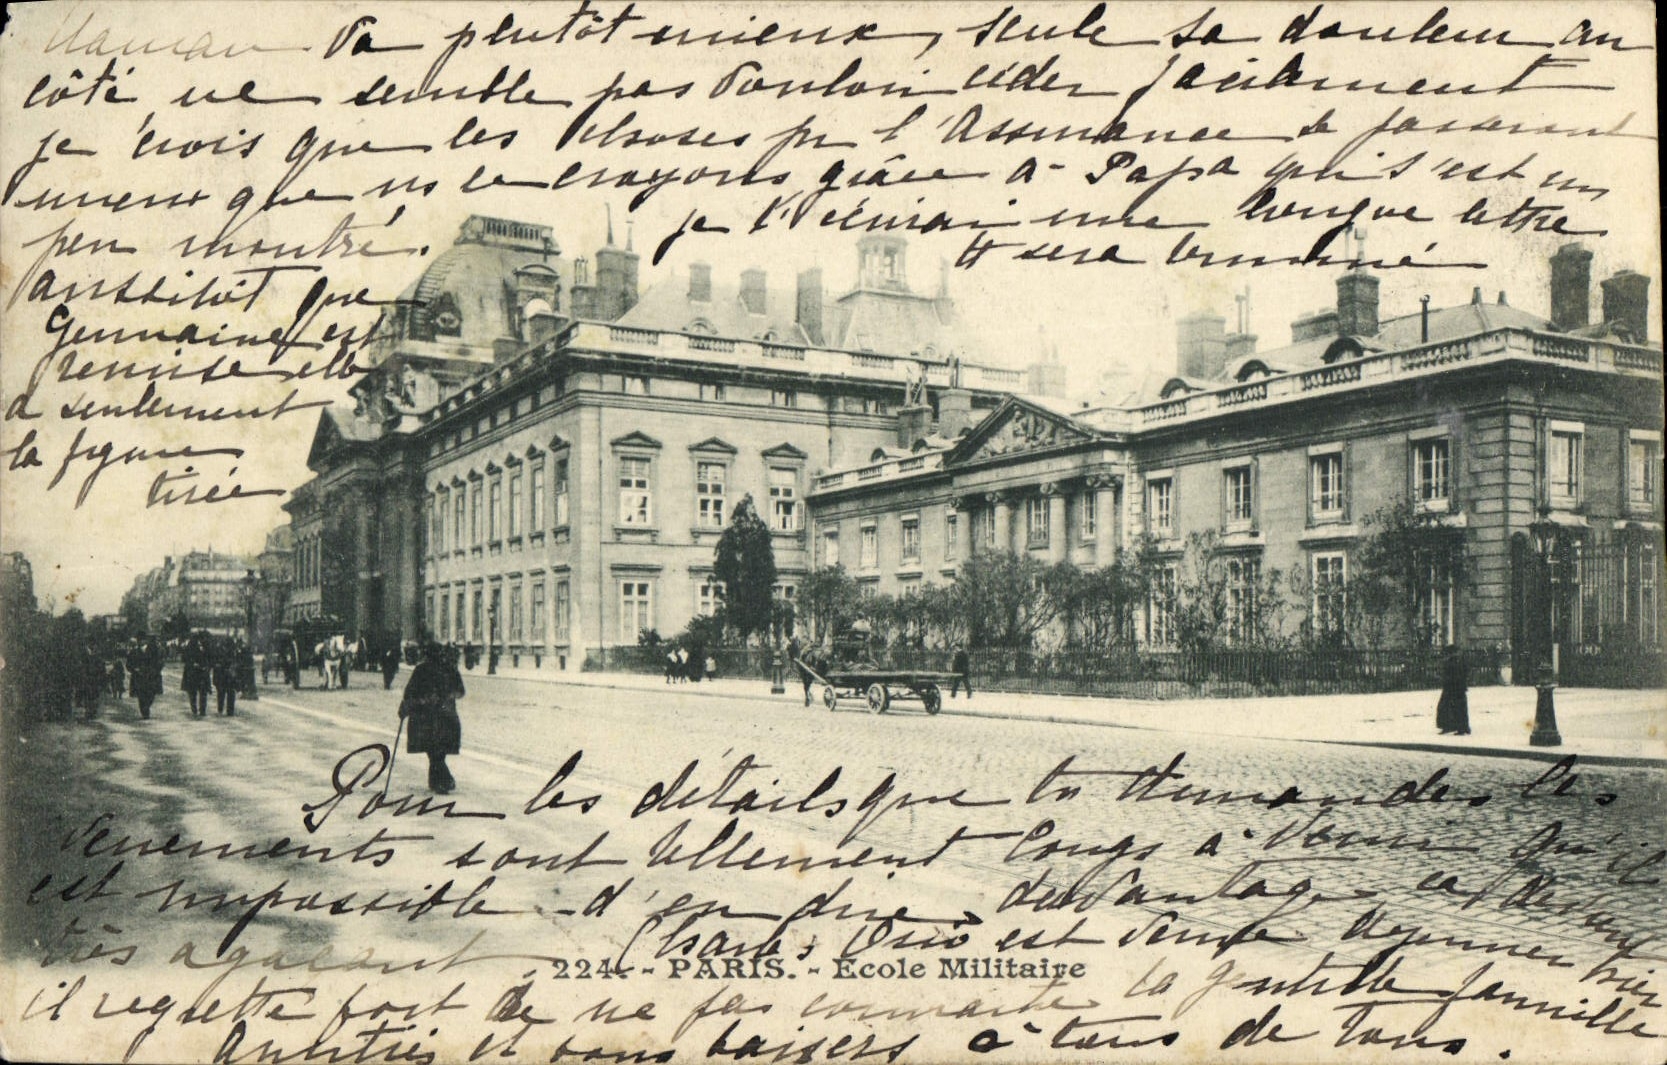 Maman va plutôt mieux, seule sa douleur au
côté ne semble pas vouloir céder facilement
je crois que les choses pr l'Assurance se passeront
mieux que ns le croyons grâce à Papa qui s'est un
peu montré.
je t'écrirai une longue lettre
tt sera terminé
aussitôt que
Germaine est
remise elle
a seulement
la figure
tirée
Pour les détails que tu demandes les
venements sont tellement longs à venir qu'il
est impossible d'en dire davantage ca devient
très agacant. Charles est venu dejeuner hier
224. - PARIS. - Ecole Militaire
il regrette fort de ne pas connaitre la gentille famille
Amitiés et bons baisers à tous de tous.